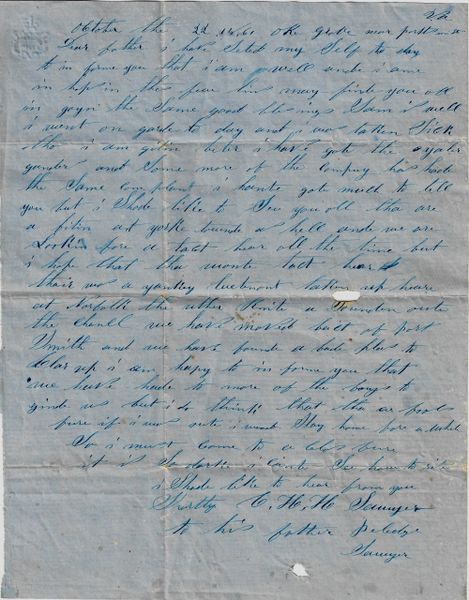 Va
October the 22 1861 oke grove near portsm
Dear father i hate seted my Self to day
to in forme you that i am well and i am
in hop in thes few lin may finde you all
in goyn the same good blesings I am i well
i went on garde to day and i was taken Sick
tho i am giten beter i have gote the yaler
ganders and Some more of the company has hade
the Same complant i hante gote much to tell
you but i Shode like to See you all tha are
a fitin at yorke bounde a hell and we are
Lookin fore a tact hear all the time but
i hope that tha wonte tact hear
thair was a yankey taken up heare
at Norfolk the uther nite a Soundin oute
the chanell we have moved back of port
Smith and we have founde a bade plas to
i am happy to in forme you that
we have hade to more of the boays to
ginde us but i do think that tha a fools
fore if i was oute i woud Stay home fore a while
So i must come to a clos fore
it is So darke i cante See how to rite
i Shode like to hear from you
Shortly C. H. H. Sawyer
to his father Peledge
Sawyer